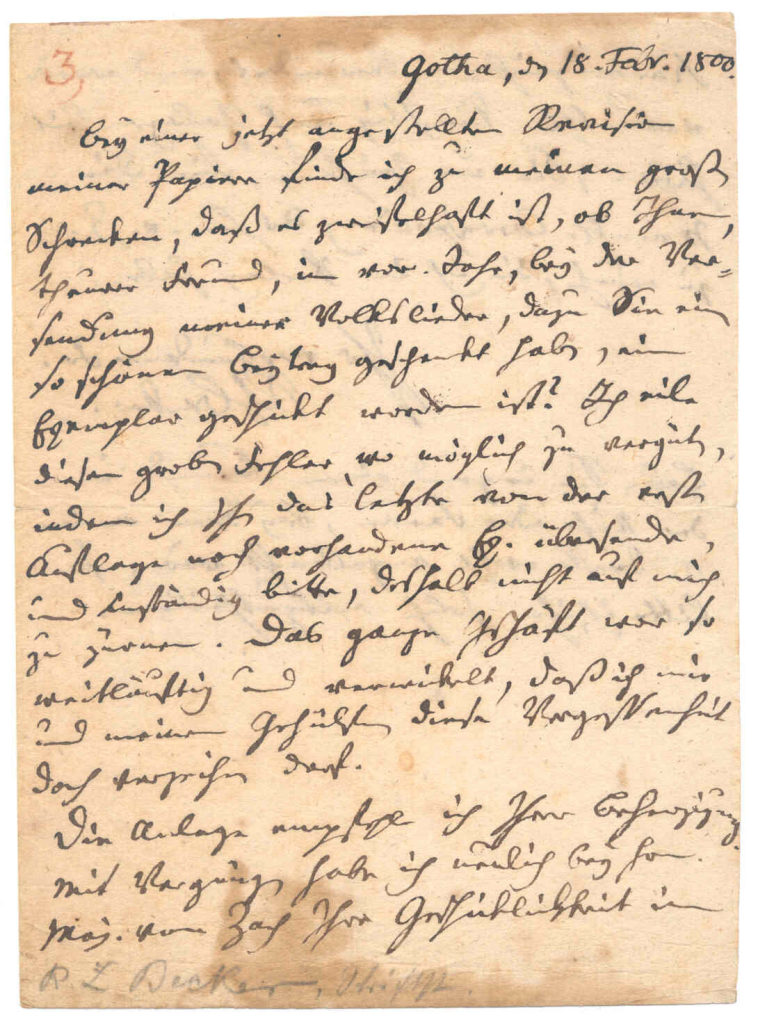 3,
Gotha, den 18. Febr. 1800.
Bey einer jetzt angestellten Revision
meiner Papiere finde ich zu meinem großen
Schrecken, daß es zweifelhaft ist, ob Ihnen,
theurer Freund, im vor. Jahr, bey der Ver-
sendung meiner Volkslieder, dazu Sie einen
so schönen Beytrag geschenkt haben, ein
Exemplar geschickt worden ist? Ich eile
diesen groben Fehler, wo möglich zu vergüten,
indem ich Ihnen das letzte von der ersten
Auflage noch vorhandene Ex. übersende,
und inständig bitte, deshalb nicht auf mich
zu zürnen. Das ganze Geschäft war so
weitläuftig und verwickelt, daß ich mir
und meinen Gehülfen diese Vergessenheit
doch verzeihen darf.
Die Anlage empfehle ich Ihrer Beherzigung.
Mit Vergnügen habe ich neulich bey Hrn.
Maj. von Zach Ihre Geschicklichkeit im
R. Z. Becker,